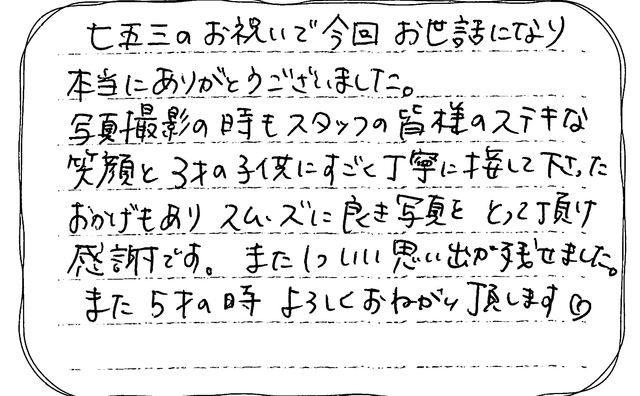 七五三のお祝いで今回 お世話になり
本当にありがとうございました。
写真撮影の時もスタッフの皆様のステキな
笑顔と 3才の子供にすごく丁寧に接して下さった
おかげもあり スムーズに良き写真を とって頂け
感謝です。 また1ついい思い出が残せました。
また 5才の時 よろしくおねがい頂します♡